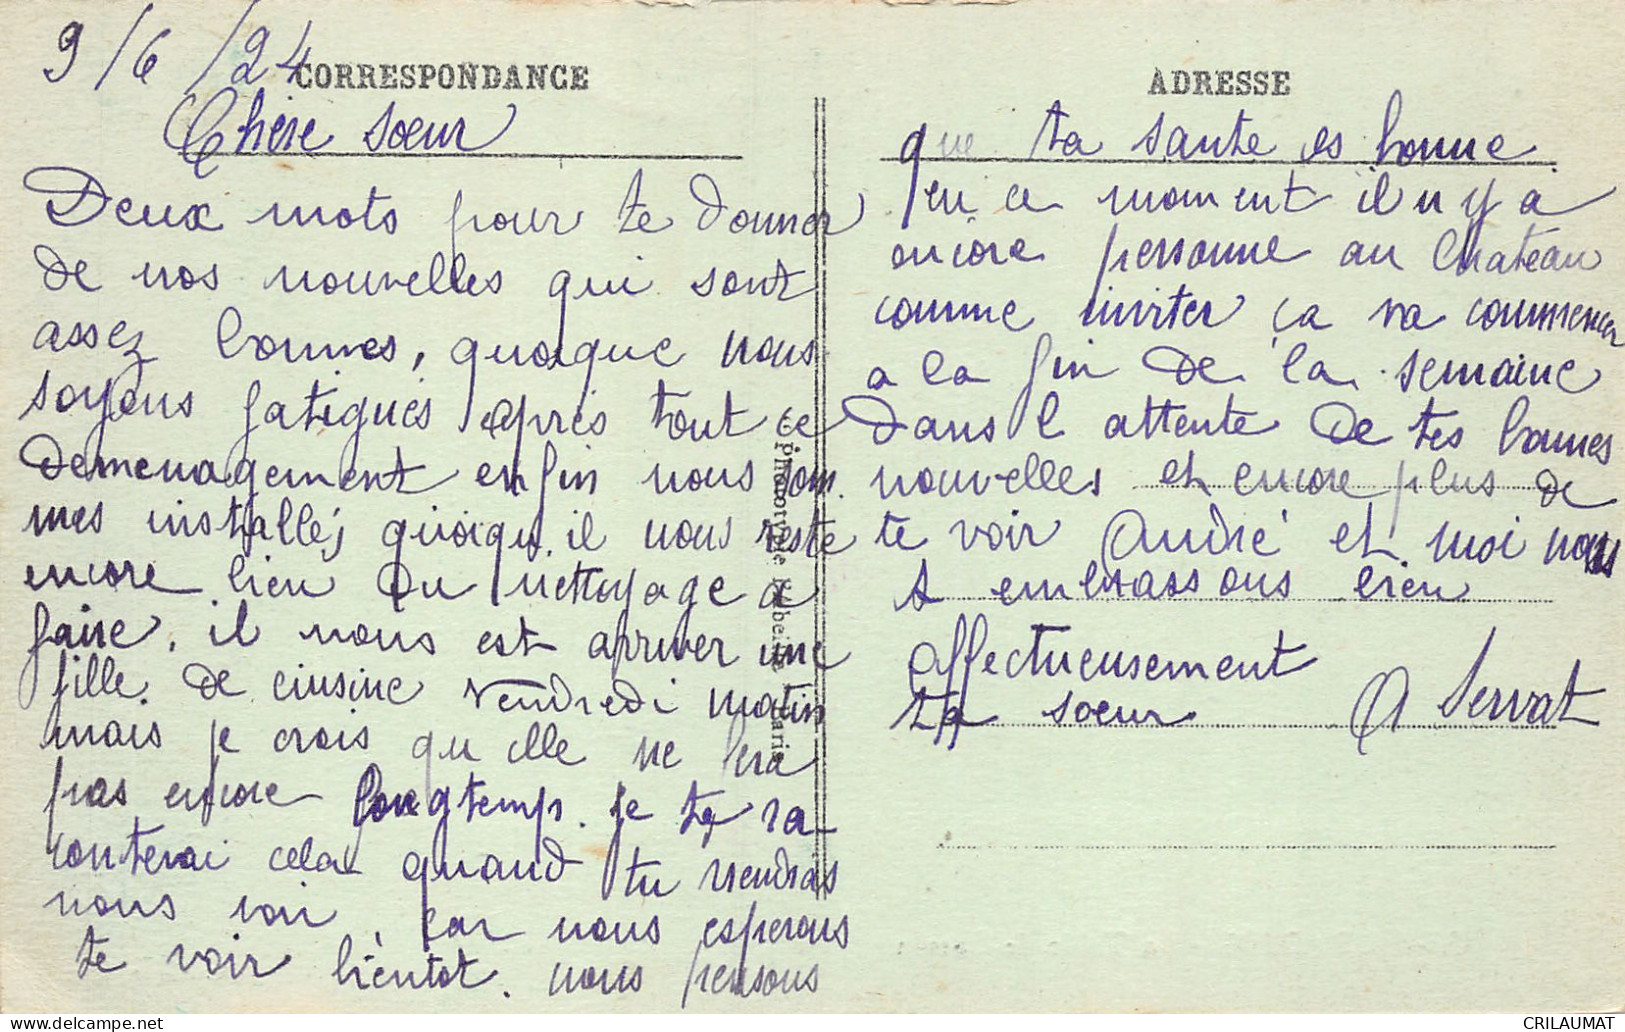 9/6/24
CORRESPONDANCE
Chère soeur
Deux mots pour te donner
de nos nouvelles qui sont
assez bonnes, quoique nous
soyons fatigués après tout ce
demenagement enfin nous som
mes installés quoiqu'il nous reste
encore bien du nettoyage a
faire, il nous est arriver une
fille de ciusine vendredi matin
mais je crois qu elle ne sera
pas encore longtemps. je te ra-
conterai cela quand tu viendras
nous voir, car nous esperons
te voir bientot. nous pensons
ADRESSE
que ta sante es bonne
en ce moment il n y a
encore personne au Chateau
comme inviter ça va commencer
a la fin de la semaine
dans l attente de tes bonnes
nouvelles et encore plus de
te voir André et moi nous
t embrassons bien
affectueusement
ta soeur A Servat
Phototypie Paris
CRILAUMAT